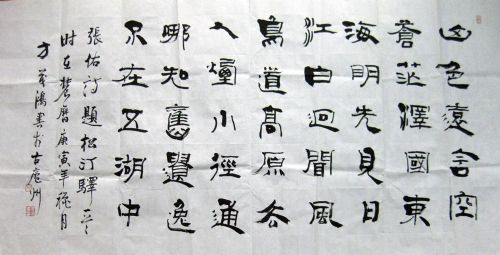 山色遠含空
蒼茫澤國東
海明先見日
江白迥聞風
鳥道高原去
人煙小徑通
哪知舊遺逸
不在五湖中
張佑詩題松汀驛
時在農曆庚寅年秋月
方 鴻書於古廬州